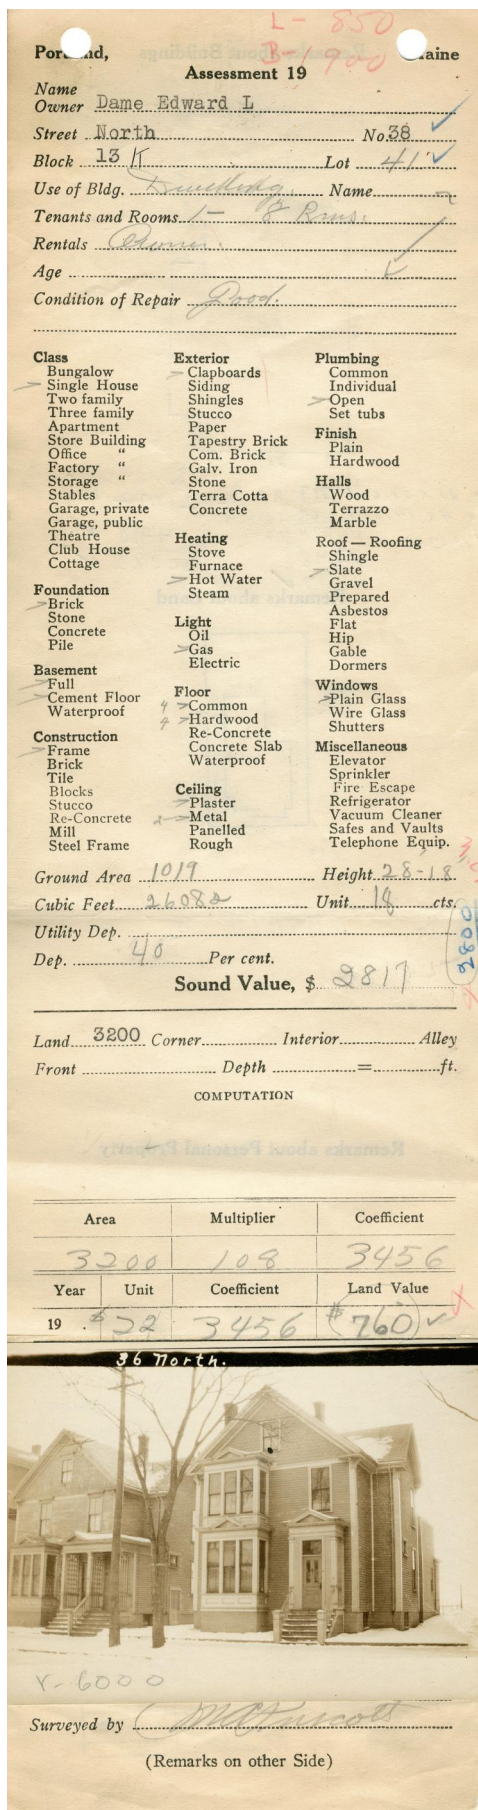 L- 850
B-1900
Portland, Maine
Assessment 19
Name
Owner Dame Edward L
Street North No. 38
Block 13 K Lot 41
Use of Bldg. Dwelling Name
Tenants and Rooms 1- 8 Rms.
Rentals Owner.
Age
Condition of Repair Good.
Class
Bungalow
Single House
Two family
Three family
Apartment
Store Building
Office "
Factory "
Storage "
Stables
Garage, private
Garage, public
Theatre
Club House
Cottage
Foundation
Brick
Stone
Concrete
Pile
Basement
Full
Cement Floor
Waterproof
Construction
Frame
Brick
Tile
Blocks
Stucco
Re-Concrete
Mill
Steel Frame
Exterior
Clapboards
Siding
Shingles
Stucco
Paper
Tapestry Brick
Com. Brick
Galv. Iron
Stone
Terra Cotta
Concrete
Heating
Stove
Furnace
Hot Water
Steam
Light
Oil
Gas
Electric
Floor
4 Common
4 Hardwood
Re-Concrete
Concrete Slab
Waterproof
Ceiling
Plaster
2 Metal
Panelled
Rough
Plumbing
Common
Individual
Open
Set tubs
Finish
Plain
Hardwood
Halls
Wood
Terrazzo
Marble
Roof — Roofing
Shingle
Slate
Gravel
Prepared
Asbestos
Flat
Hip
Gable
Dormers
Windows
Plain Glass
Wire Glass
Shutters
Miscellaneous
Elevator
Sprinkler
Fire Escape
Refrigerator
Vacuum Cleaner
Safes and Vaults
Telephone Equip.
Ground Area 1019 Height 28-18
Cubic Feet 26082 Unit 18 cts.
2800
Utility Dep.
Dep. 40 Per cent.
Sound Value, $ 2817
Land 3200 Corner Interior Alley
Front Depth = ft.
COMPUTATION
Area Multiplier Coefficient
3200 108 3456
Year Unit Coefficient Land Value
19 . $ 22 3456 $ 760
36 North.
V-6000
Surveyed by
(Remarks on other Side)